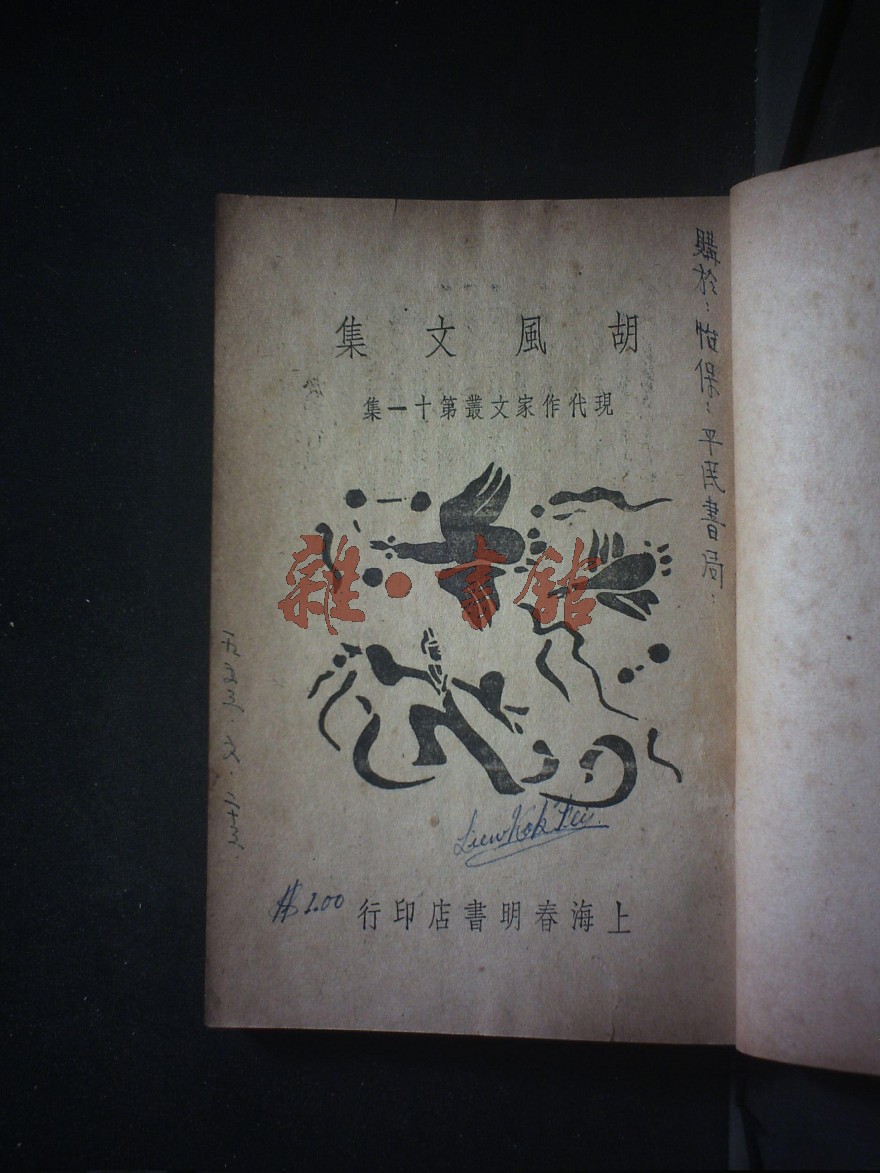 胡風文集
現代作家文叢第十一集
購於：怡保：平民書局．
雜·書館
Liew Kok Fui.
$1.00
上海春明書店印行